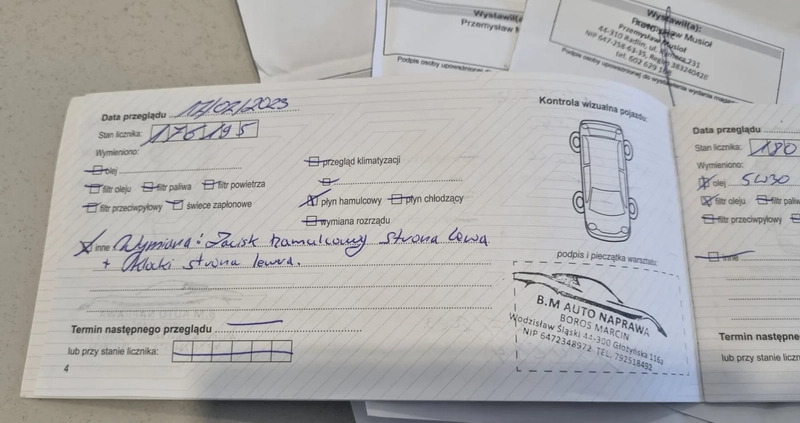 Wystawił(a):
Przemysław M
Podpis osoby upoważnionej
Wystawił(a):
Przemysław Musioł
44-310 Radlin, ul. 231
NIP 647-258-63-35, Regon 383240428
tel. 602 629
Podpis osoby upoważnionej do wystawienia
Data przeglądu 17/02/2023
Stan licznika: 176195
Wymieniono:
olej
filtr oleju filtr paliwa filtr powietrza
filtr przeciwpyłowy świece zapłonowe
przegląd klimatyzacji
płyn hamulcowy płyn chłodzący
wymiana rozrządu
inne Wymiana: Zacisk hamulcowy strona lewa
+ Klocki strona lewa.
Termin następnego przeglądu
lub przy stanie licznika:
4
Kontrola wizualna pojazdu:
podpis i pieczątka warsztatu:
B.M AUTO NAPRAWA
BOROS MARCIN
Wodzisław Śląski 44-300 Głożyńska 116a
NIP 6472348972 TEL. 792518492
Data przeglądu
Stan licznika: 180
Wymieniono:
olej 5W30
filtr oleju filtr paliw
filtr przeciwpyłowy
inne
Termin następne
lub przy stanie liczn